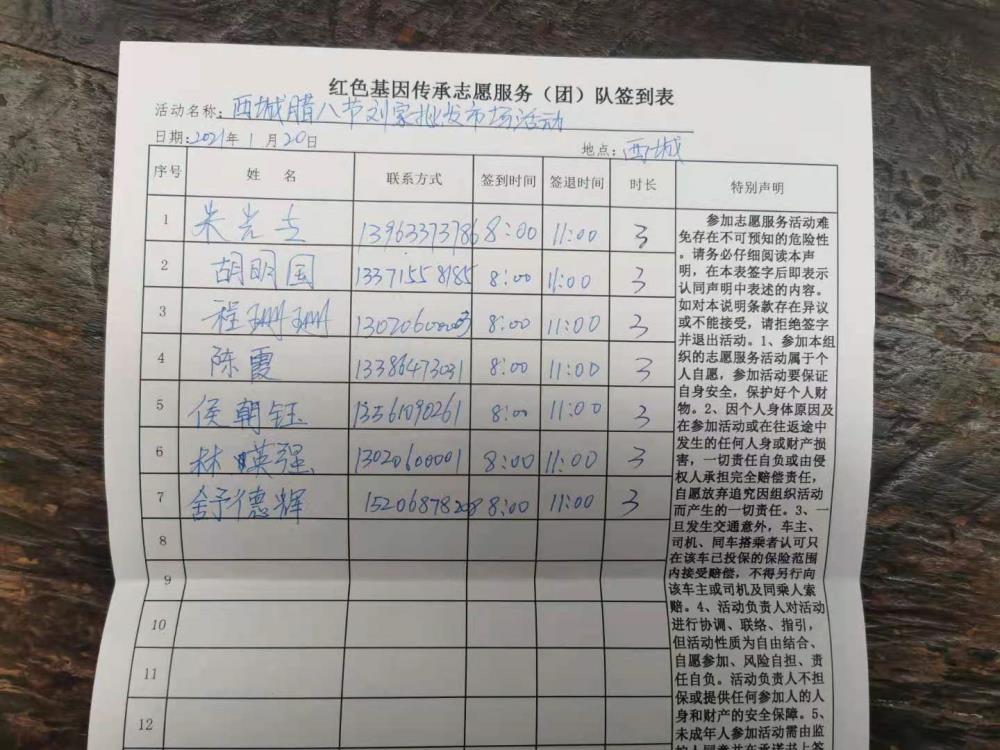 红色基因传承志愿服务（团）队签到表
活动名称：西城腊八节刘家批发市场活动
日期：2021年1月20日 地点：西城
序号 姓 名 联系方式 签到时间 签退时间 时长 特别声明
1 朱光文 13963373786 8:00 11:00 3
2 胡明国 13371558185 8:00 11:00 3
3 程珊珊 8:00 11:00 3
4 陈霞 13386473031 8:00 11:00 3
5 侯朝钰 13561090261 8:00 11:00 3
6 林瑛强 13020600001 8:00 11:00 3
7 舒德辉 15206878208 8:00 11:00 3
8
9
10
11
12
参加志愿服务活动难
免存在不可预知的危险性
。请务必仔细阅读本声
明，在本表签字后即表示
认同声明中表述的内容。
如对本说明条款存在异议
或不能接受，请拒绝签字
并退出活动。1、参加本组
织的志愿服务活动属于个
人自愿，参加活动要保证
自身安全，保护好个人财
物。2、因个人身体原因及
在参加活动或在往返途中
发生的任何人身或财产损
害，一切责任自负或由侵
权人承担完全赔偿责任，
自愿放弃追究因组织活动
而产生的一切责任。3、一
旦发生交通意外，车主、
司机、同车搭乘者认可只
在该车已投保的保险范围
内接受赔偿，不得另行向
该车主或司机及同乘人索
赔。4、活动负责人对活动
进行协调、联络、指引，
但活动性质为自由结合、
自愿参加、风险自担、责
任自负。活动负责人不担
保或提供任何参加人的人
身和财产的安全保障。5、
未成年人参加活动需由监
护人同意并在承诺书上签